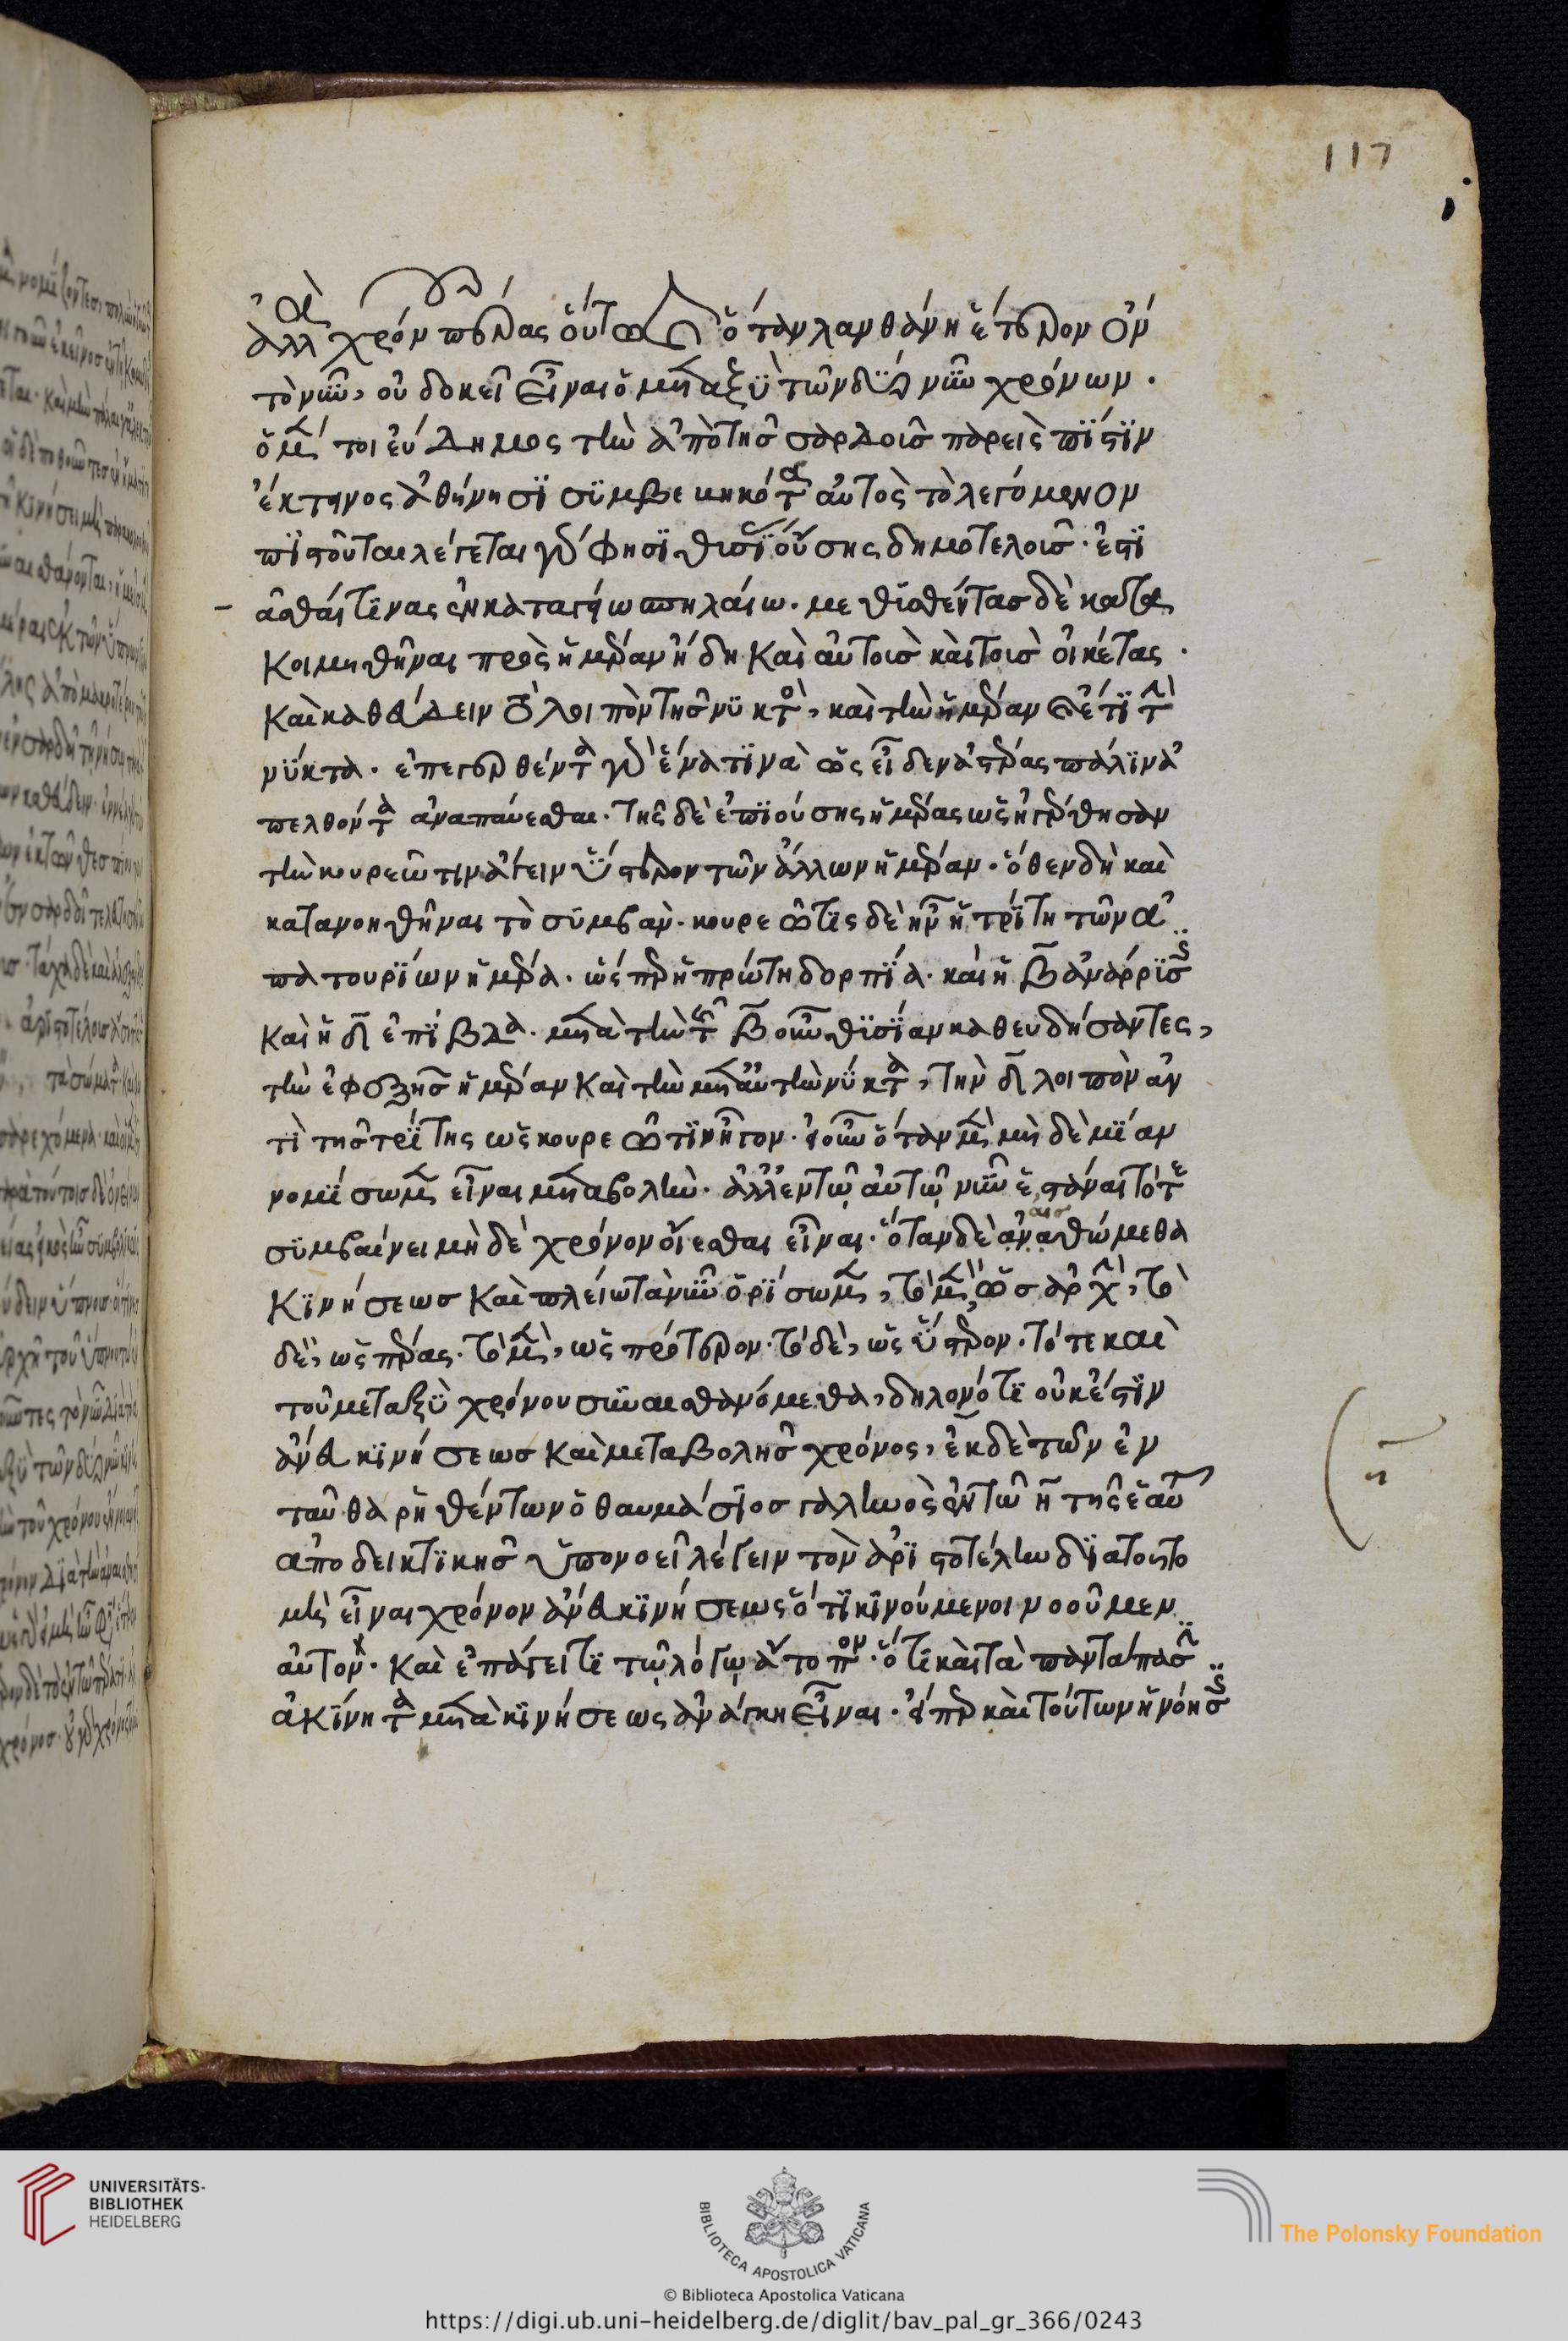 ἀλλὰ χρόνων πέρας οὕτως ὅταν λανθάνη ἕτερον ὂν
τὸ νῦν, οὐ δοκεῖ εἶναι ὁ μεταξὺ τῶν δύο νῦν χρόνων.
ὁ μέντοι εὔδημος τὴν ἀπὸ τῆς σαρδοῖς παρεὶς πίστιν
ἐκτηνος ἀθήνησι συμβεκηκότα αὐτὸς τὸ λεγόμενον
πιστοῦται λέγεται γάρ φησι θυσίας οὔσης δημοτελοῖς. ἑστι
ᾶσθαί τινας ἐν καταγήω σπηλαίω. μεθισθέντας δὲ κατα
κοιμηθῆναι πρὸς ἡμέραν ἤδη καὶ αὐτοὶς καὶ τοὶς οἰκέτας.
καὶ καθεύδειν τὸ λοιπὸν τῆς νυκτὸς, καὶ τὴν ἡμέραν καὶ ἔτι τὴν
νύκτα. ἐπεγερθέντα γὰρ ἕνα τινὰ ὡς εἶδεν ἀστέρας πάλιν ἀ
πελθόντα ἀναπαύεσθαι. τῆς δὲ ἐπιούσης ἡμέρας ὡς ἠγέρθησαν
τὴν κουρεῶτιν ἄγειν ὕστερον τῶν ἄλλων ἡμέραν. ὅθεν δὴ καὶ
κατανοηθῆναι τὸ συμβάν. κουρεῶτις δὲ ἦν ἡ τρίτη τῶν ἀ
πατουρίων ἡμέρα. ὥσπερ ἡ πρώτη δορπία. καὶ ἡ β ἀνάρρισις
καὶ ἡ δ ἐπίβδα. μετὰ τὴν τῆς β οὖν θισίαν καθευδήσαντες,
τὴν ἐφεξῆς ἡμέραν καὶ τὴν μετ' αὐτὴν νύκτα, τὴν δ λοιπὸν ἀν
τὶ τῆς τρίτης ὡς κουρεῶτιν ἦγον. ἐι οὖν ὅταν μὲν μηδὲ μίαν
νομίσωμεν εἶναι μεταβολὴν. ἀλλ' ἐν τῶ αὐτῶ νῦν ἑστάναι τότε
συμβαίνει μὴ δὲ χρόνον οἴεσθαι εἶναι. ὅταν δὲ αἰσθώμεθα
κινήσεως καὶ πλείω τὰ νῦν ὁρίσωμεν, τὸ μὲν, ὡς ἀρχὴν, τὸ
δὲ, ὡς πέρας. τὸ μὲν, ὡς πρότερον. τὸ δὲ, ὡς ὕστερον. τότε καὶ
τοῦ μεταξὺ χρόνου συναισθανόμεθα, δηλονότι οὐκ ἔστιν
ἄνευ κινήσεως καὶ μεταβολῆς χρόνος, ἐκ δὲ τῶν ἐν
ταῦθα ῥηθέντων ὁ θαυμάσιος γαληνὸς ἐν τῶ η τῆς ἑαυτοῦ
ἀποδεικτικῆς ὑπονοεῖ λέγειν τὸν ἀριστοτέλην διατοῦτο
μὴ εἶναι χρόνον ἄνευ κινήσεως ὅτι κινούμενοι νοοῦμεν
αὐτον. καὶ ἐπάγει τί τῶ λόγω ἄτοπον. ὅτι καὶ τὰ πανταπάσιν
ἀκίνητα μετὰ κινήσεως ἀνάγκη εἶναι. ἐίπερ καὶ τούτων ἡ νόησις
117
η
UNIVERSITÄTS-
BIBLIOTHEK
HEIDELBERG
BIBLIOTECA APOSTOLICA VATICANA
The Polonsky Foundation
© Biblioteca Apostolica Vaticana
https://digi.ub.uni-heidelberg.de/diglit/bav_pal_gr_366/0243